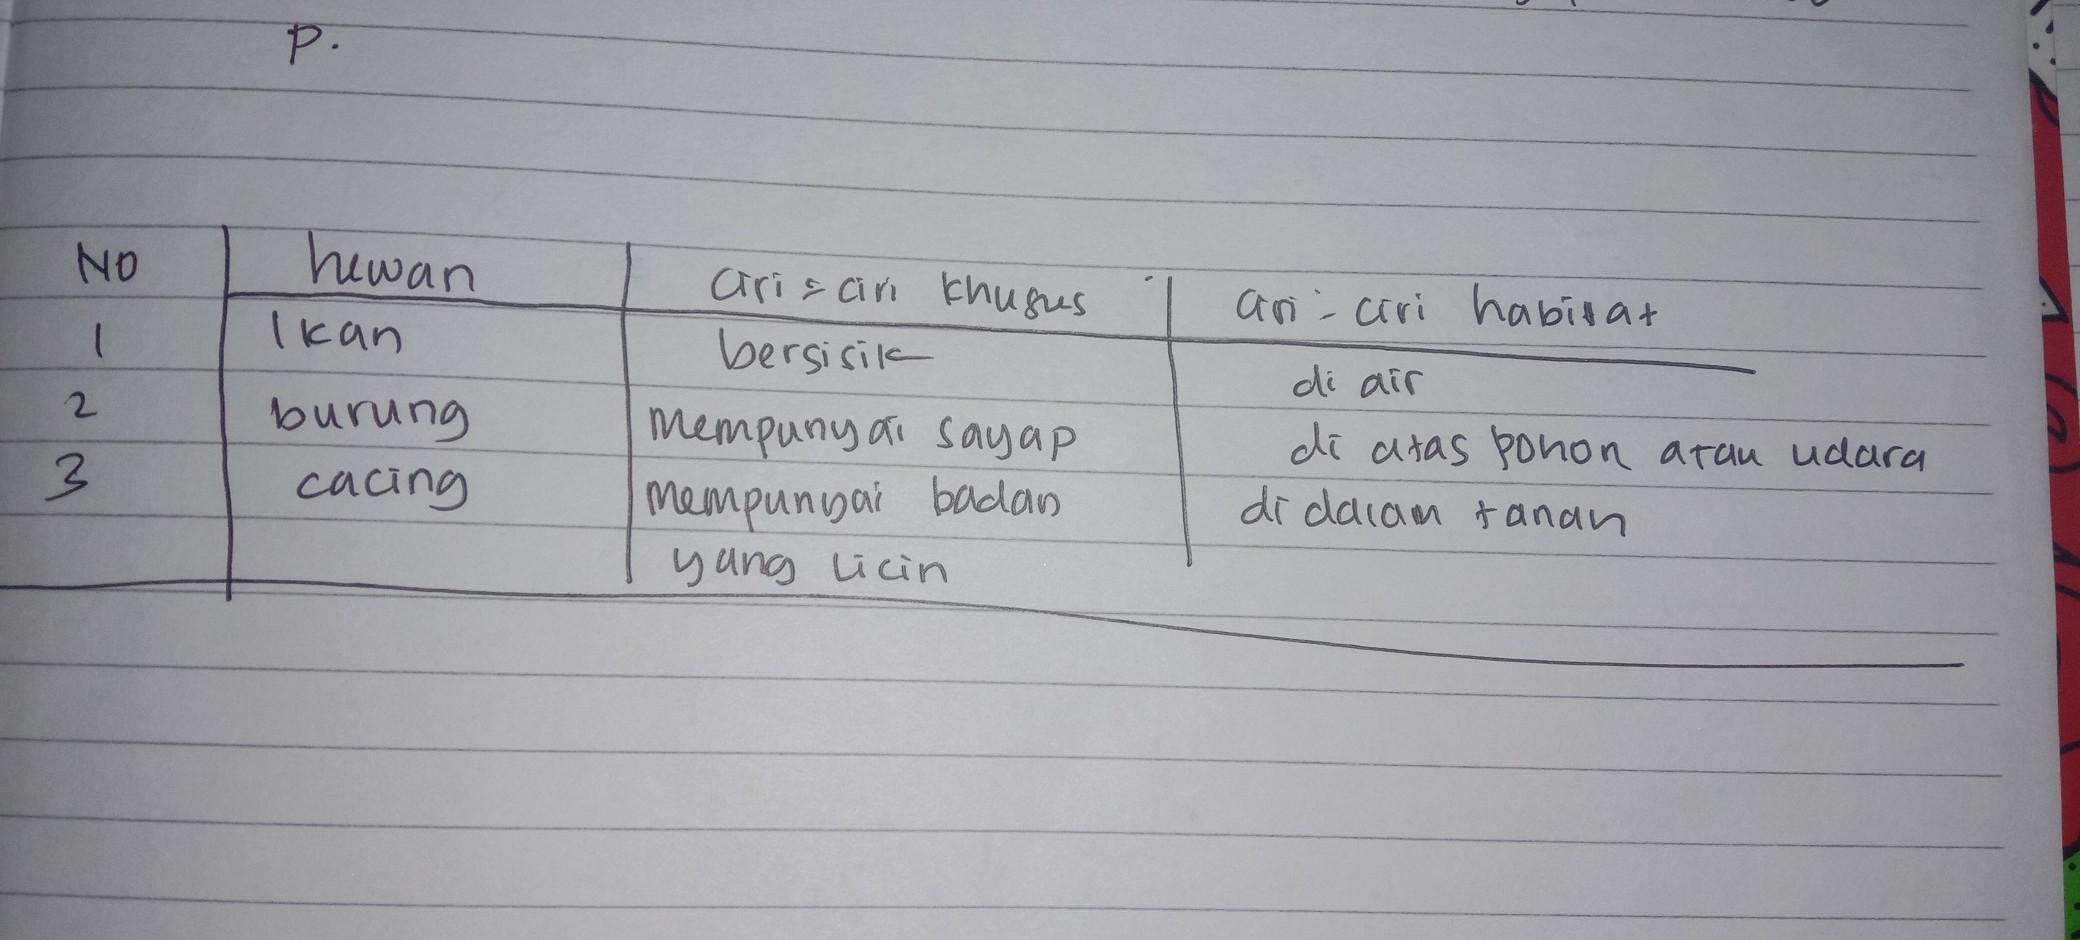 P.
NO hewan ciri = ciri khusus ciri - ciri habitat
1 Ikan bersisik di air
2 burung mempunyai sayap di atas pohon atau udara
3 cacing mempunyai badan di dalam tanah
yang licin